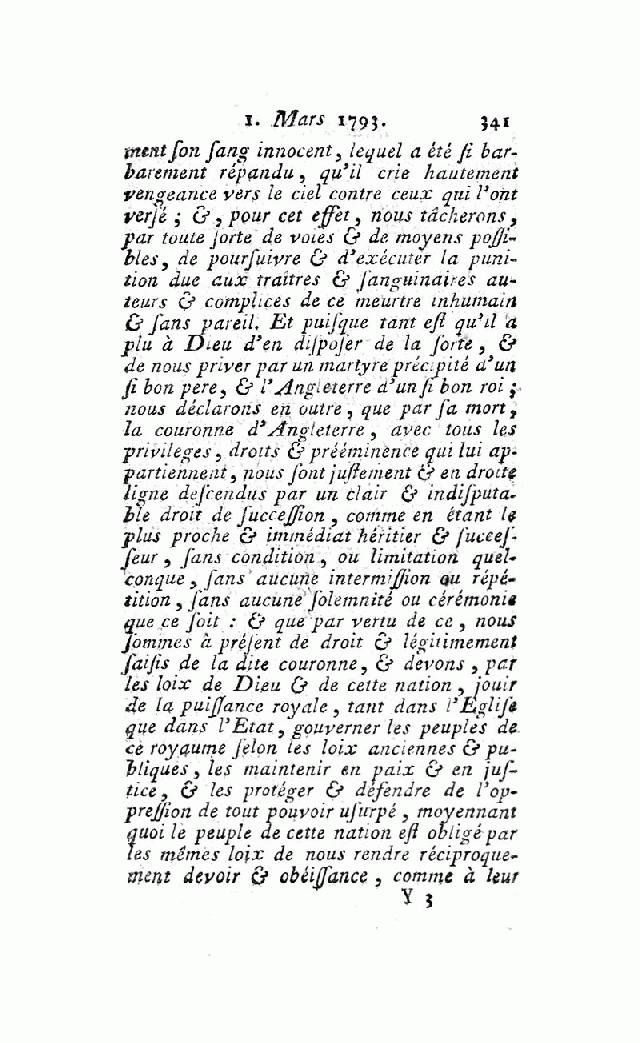 1. Mars 1793. 341
ment ſon ſang innocent, lequel a été ſi bar-
barement répandu, qu'il crie hautement
vengeance vers le ciel contre ceux qui l'ont
verſé ; &, pour cet effet, nous tâcherons,
par toute ſorte de voies & de moyens poſſi-
bles, de pourſuivre & d'exécuter la puni-
tion due aux traîtres & ſanguinaires au-
teurs & complices de ce meurtre inhumain
& ſans pareil. Et puiſque tant eſt qu'il a
plu à Dieu d'en diſpoſer de la ſorte, &
de nous priver par un martyre précipité d'un
ſi bon pere, & l'Angleterre d'un ſi bon roi ;
nous déclarons en outre, que par ſa mort,
la couronne d'Angleterre, avec tous les
privileges, droits & prééminence qui lui ap-
partiennent, nous ſont juſtement & en droite
ligne deſcendus par un clair & indiſputa-
ble droit de ſucceſſion, comme en étant le
plus proche & immédiat héritier & ſucceſ-
ſeur, ſans condition, ou limitation quel-
conque, ſans aucune intermiſſion ou répé-
tition, ſans aucune ſolemnité ou cérémonie
que ce ſoit : & que par vertu de ce, nous
ſommes à préſent de droit & légitimement
ſaiſis de la dite couronne, & devons, par
les loix de Dieu & de cette nation, jouir
de la puiſſance royale, tant dans l'Egliſe
que dans l'Etat, gouverner les peuples de
ce royaume ſelon les loix anciennes & pu-
bliques, les maintenir en paix & en juſ-
tice, & les protéger & défendre de l'op-
preſſion de tout pouvoir uſurpé, moyennant
quoi le peuple de cette nation eſt obligé par
les mêmes loix de nous rendre réciproque-
ment devoir & obéiſſance, comme à leur
Y 3